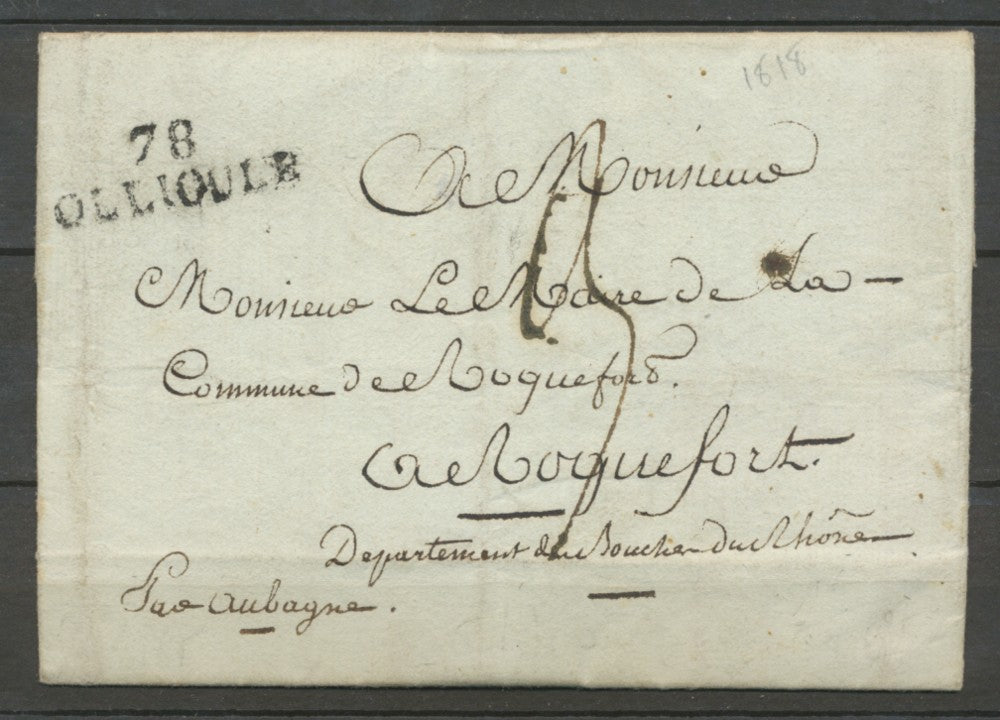 1818
78
OLLIOULE
A Monsieur
3
Monsieur Le Maire de La
Commune de Roquefort.
A Roquefort.
Departement des Bouches du Rhône
Par Aubagne.